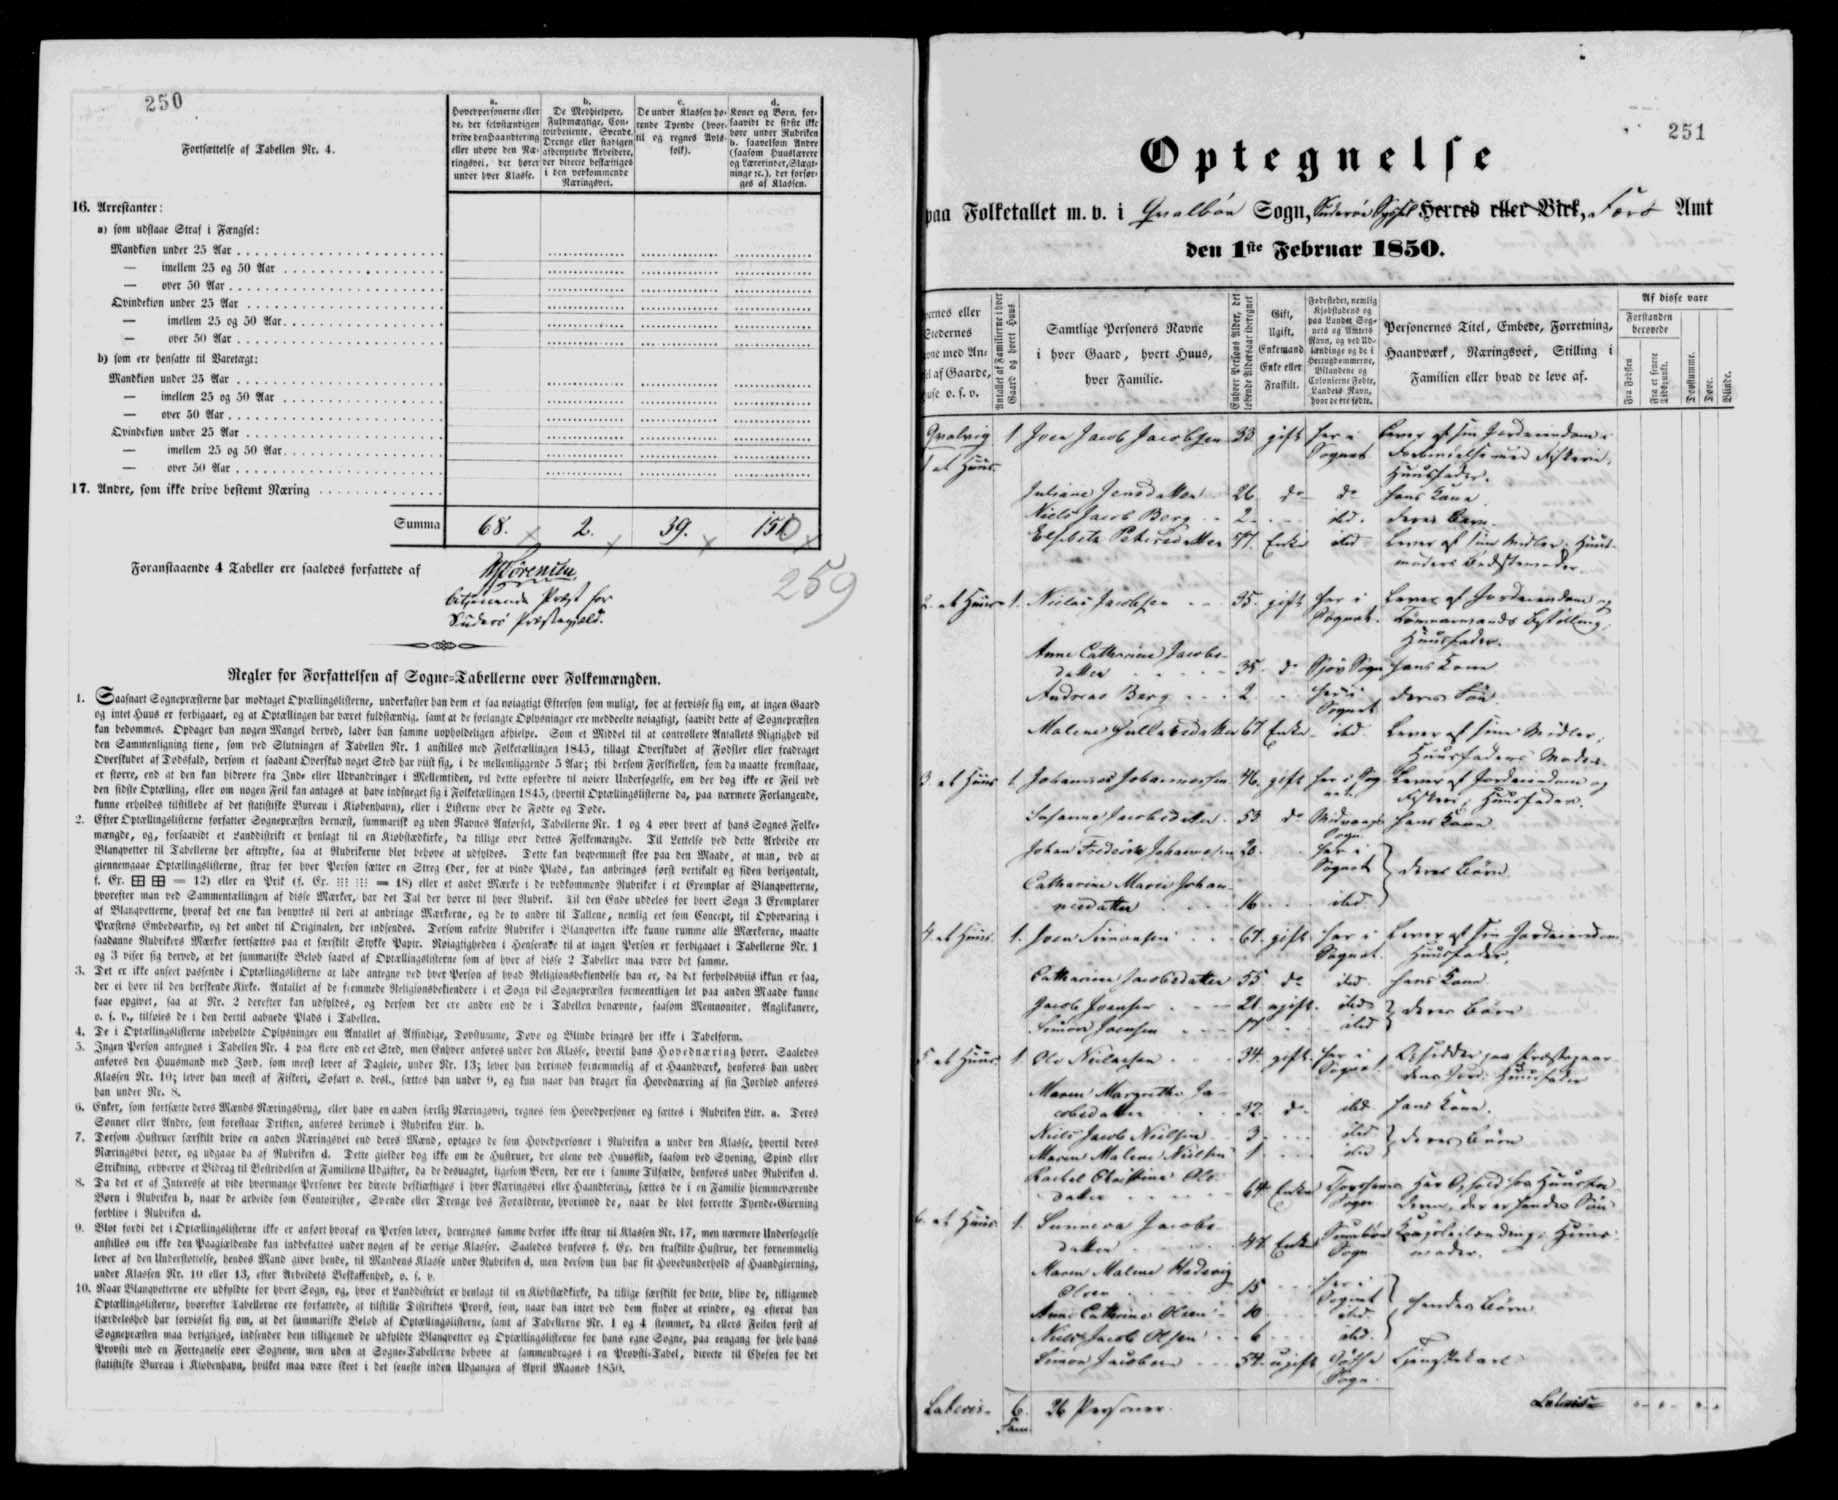 250
Fortsættelse af Tabellen Nr. 4.
a.
Hovedpersonerne eller
de, der selvstændigen
drive den Haandtering
eller udøve den Næ-
ringsvei, der hører
under hver Klasse.
b.
De Medhielpere,
Fuldmægtige, Con-
toirbetiente, Svende,
Drenge eller stadigen
afbenyttede Arbeidere,
der directe beskæftiges
i den vedkommende
Næringsvei.
c.
De under Klassen hø-
rende Tyende (hvor-
til og regnes Avls-
folk).
d.
Koner og Børn, for-
saavidt de sidste ikke
høre under Rubriken
b. saavelsom Andre
(saasom Huuslærere
og Lærerinder, Slægt-
ninge ic.), der forsør-
ges af Klassen.
16. Arrestanter:
a) som udstaae Straf i Fængsel:
Mandkiøn under 25 Aar
— imellem 25 og 50 Aar
— over 50 Aar
Qvindekiøn under 25 Aar
— imellem 25 og 50 Aar
— over 50 Aar
b) som ere hensatte til Varetægt:
Mandkiøn under 25 Aar
— imellem 25 og 50 Aar
— over 50 Aar
Qvindekiøn under 25 Aar
— imellem 25 og 50 Aar
— over 50 Aar
17. Andre, som ikke drive bestemt Næring
Summa 68. 2. 39. 150
Foranstaaende 4 Tabeller ere saaledes forfattede af Sørensen
betjenende Præst for
Suderø Præstegjeld.
259
Regler for Forfattelsen af Sogne-Tabellerne over Folkemængden.
1. Saasnart Sognepræsterne har modtaget Optællingslisterne, underkaster han dem et saa nøiagtigt Eftersyn som muligt, for at forvisse sig om, at ingen Gaard
og intet Huus er forbigaaet, og at Optællingen har været fuldstændig, samt at de forlangte Oplysninger ere meddeelte nøiagtigt, saavidt dette af Sognepræsten
kan bedømmes. Opdager han nogen Mangel derved, lader han samme uopholdeligen afhielpe. Som et Middel til at controllere Antallets Rigtighed vil
den Sammenligning tiene, som ved Slutningen af Tabellen Nr. 1 anstilles med Folketællingen 1845, tillagt Overskudet af Fødsler eller fradraget
Overskudet af Dødsfald, dersom et saadant Overskud noget Sted har viist sig, i de mellemliggende 5 Aar; thi dersom Forskiellen, som da maatte fremstaae,
er større, end at den kan hidrøre fra Ind- eller Udvandringer i Mellemtiden, vil dette opfordre til nøiere Undersøgelse, om der dog ikke er Feil ved
den sidste Optælling, eller om nogen Feil kan antages at have indsneget sig i Folketællingen 1845, (hvortil Optællingslisterne da, paa nærmere Forlangende,
kunne erholdes tilstillede af det statistiske Bureau i Kiøbenhavn), eller i Listerne over de Fødte og Døde.
2. Efter Optællingslisterne forfatter Sognepræsten dernæst, summarisk og uden Navnes Anførsel, Tabellerne Nr. 1 og 4 over hvert af hans Sognes Folke-
mængde, og, forsaavidt et Landdistrikt er henlagt til en Kiøbstadkirke, da tillige over dettes Folkemængde. Til Lettelse ved dette Arbeide ere
Blanqvetter til Tabellerne her aftrykte, saa at Rubrikerne blot behøve at udfyldes. Dette kan beqvemmest skee paa den Maade, at man, ved at
giennemgaae Optællingslisterne, strax for hver Person sætter en Streg (der, for at vinde Plads, kan anbringes først vertikalt og siden horizontalt,
f. Ex. 田田 = 12) eller en Prik (f. Ex. ⁝⁝⁝ ⁝⁝⁝ = 18) eller et andet Mærke i de vedkommende Rubriker i et Exemplar af Blanqvetterne,
hvorefter man ved Sammentællingen af disse Mærker, har det Tal der hører til hver Rubrik. Til den Ende uddeles for hvert Sogn 3 Exemplarer
af Blanqvetterne, hvoraf det ene kan benyttes til deri at anbringe Mærkerne, og de to andre til Tallene, nemlig eet som Concept, til Opbevaring i
Præstens Embedsarkiv, og det andet til Originalen, der indsendes. Dersom enkelte Rubriker i Blanqvetten ikke kunne rumme alle Mærkerne, maatte
saadanne Rubrikers Mærker fortsættes paa et særskilt Stykke Papir. Nøiagtigheden i Henseende til at ingen Person er forbigaaet i Tabellerne Nr. 1
og 3 viser sig derved, at det summariske Beløb saavel af Optællingslisterne som af hver af disse 2 Tabeller maa være det samme.
3. Det er ikke anseet passende i Optællingslisterne at lade antegne ved hver Person af hvad Religionsbekiendelse han er, da det forholdsviis ikkun er faa,
der ei høre til den herskende Kirke. Antallet af de fremmede Religionsbekiendere i et Sogn vil Sognepræsten formeentligen let paa anden Maade kunne
faae opgivet, saa at Nr. 2 derefter kan udfyldes, og dersom der ere andre end de i Tabellen benævnte, saasom Mennoniter, Anglikanere,
o. s. v., tilføies de i den dertil aabnede Plads i Tabellen.
4. De i Optællingslisterne indeholdte Oplysninger om Antallet af Afsindige, Døvstumme, Døve og Blinde bringes her ikke i Tabelform.
5. Ingen Person antegnes i Tabellen Nr. 4 paa flere end eet Sted, men Enhver anføres under den Klasse, hvortil hans Hovednæring hører. Saaledes
anføres den Huusmand med Jord, som meest lever af Dagleie, under Nr. 13; lever han derimod fornemmelig af et Haandværk, henføres han under
Klassen Nr. 10; lever han meest af Fiskeri, Søfart o. desl., sættes han under 9, og kun naar han drager sin Hovednæring af sin Jordlod anføres
han under Nr. 8.
6. Enker, som fortsætte deres Mænds Næringsbrug, eller have en anden særlig Næringsvei, regnes som Hovedpersoner og sættes i Rubriken Litr. a. Deres
Sønner eller Andre, som forestaae Driften, anføres derimod i Rubriken Litr. b.
7. Dersom Hustruer særskilt drive en anden Næringsvei end deres Mænd, optages de som Hovedpersoner i Rubriken a under den Klasse, hvortil deres
Næringsvei hører, og udgaae da af Rubriken d. Dette gielder dog ikke om de Hustruer, der alene ved Huusflid, saasom ved Syening, Spind eller
Strikning, erhverve et Bidrag til Bestridelsen af Familiens Udgifter, da de desuagtet, ligesom Børn, der ere i samme Tilfælde, henføres under Rubriken d.
8. Da det er af Interesse at vide hvormange Personer der directe beskiæftiges i hver Næringsvei eller Haandtering, sættes de i en Familie hiemmeværende
Børn i Rubriken b, naar de arbeide som Contoirister, Svende eller Drenge hos Forældrene, hvorimod de, naar de blot forrette Tyende-Gierning
forblive i Rubriken d.
9. Blot fordi det i Optællingslisterne ikke er anført hvoraf en Person lever, henregnes samme derfor ikke strax til Klassen Nr. 17, men nærmere Undersøgelse
anstilles om ikke den Paagiældende kan indbefattes under nogen af de øvrige Klasser. Saaledes henføres f. Ex. den fraskilte Hustrue, der fornemmelig
lever af den Understøttelse, hendes Mand giver hende, til Mandens Klasse under Rubriken d, men dersom hun har sit Hovedunderhold af Haandgierning,
under Klassen Nr. 10 eller 13, efter Arbeidets Beskaffenhed, o. s. v.
10. Naar Blanqvetterne ere udfyldte for hvert Sogn, og, hvor et Landdistrict er henlagt til en Kiøbstadkirke, da tillige særskilt for dette, blive de, tilligemed
Optællingslisterne, hvorefter Tabellerne ere forfattede, at tilstille Distriktets Provst, som, naar han intet ved dem finder at erindre, og efterat han
isærdeleshed har forvisset sig om, at det summariske Beløb af Optællingslisterne, samt af Tabellerne Nr. 1 og 4 stemmer, da ellers Feilen først af
Sognepræsten maa berigtiges, indsender dem tilligemed de udfyldte Blanqvetter og Optællingslisterne for hans egne Sogne, paa eengang for hele hans
Provsti med en Fortegnelse over Sognene, men uden at Sogne-Tabellerne behøve at sammendrages i en Provsti-Tabel, directe til Chefen for det
statistiske Bureau i Kiøbenhavn, hvilket maa være skeet i det seneste inden Udgangen af April Maaned 1850.
251
Optegnelse
paa Folketallet m. v. i Qvalbøe Sogn, Suderøe Syssel Herred eller Birk, Færø Amt
den 1ste Februar 1850.
ernes eller
Stedernes
vne med An-
el af Gaarde,
use o. s. v.
Antallet af Familierne i hver
Gaard og hvert Huus
Samtlige Personers Navne
i hver Gaard, hvert Huus,
hver Familie.
Enhver Persons Alder, det
løbende Aldersaar iberegnet
Gift,
Ugift,
Enkemand
Enke eller
Fraskilt.
Fødestedet, nemlig
Kjøbstadens og
paa Landet Sog-
nets og Amtets
Navn, og ved Ud-
lændinge og de i
Hertugdømmerne,
Bilandene og
Colonierne Fødte,
Landets Navn,
hvor de ere fødte.
Personernes Titel, Embede, Forretning,
Haandværk, Næringsvei, Stilling i
Familien eller hvad de leve af.
Af disse vare
Forstanden
berøvede
Fra Fødslen
Fra et senere
Tidspunkt.
Døvstumme.
Døve.
Blinde.
Qvalvig 1. Joen Jacob Jacobsen 33. gift her i Lever af sin Jordeiendom i
1 et Huus Sognet Forbindelse med Fiskerie,
Huusfader.
Juliane Jensdatter 26. do do hans Kone
Niels Jacob Berg 2. ibd. deres Barn.
Elsebeth Petersdatter 77. Enke ibd Lever af sine Midler, Huus-
moders Bedstemoder.
2. et Huus 1. Niclas Jacobsen 35. gift her i Lever af Jordeiendom og
Sognet. Tømmermands Bestilling,
Huusfader.
Anne Cathrine Jacobs-
datter 35. do Sjov Sogn hans Kone
Andreas Berg 2 her i deres Søn
Sognet
Malene 67 Enke ibd Lever af sine Midler,
Huusfaders Moder.
3 et Huus 1. Johannes Johannessen 46. gift her i Sog- Lever af Jordeiendom og
net Fiskeri, Huusfader.
Susanne Jacobsdatter 53 do Midvaags hans Kone
Sogn
Johan Frederik Johannesen 20. her i
Sognet deres Børn
Catharine Marie Johan-
nesdatter 16 ibd.
4. et Huus 1. Joen Simonsen 67. gift her i Lever af sin Jordeiendom
Sognet. Huusfader,
Cathrine Jacobsdatter 55. do ibd. hans Kone
Jacob Joensen 21. ugift. ibd deres Børn
Simon Joensen 17 ibd
5 et Huus 1. Ole Nielsen 34. gift her i Opsidder paa Præstegaar-
Sognet dens Jord. Huusfader
Maren Margrethe Ja-
cobsdatter 32. do ibd hans Kone.
Niels Jacob Nielsen 3. ibd deres Børn
Maren Malene Nielsen 1 ibd
Rachel Christine Ols-
datter 64. Enke Sogn har Ophold hos Huusfa-
deren, der er hendes Søn
6. et Huus 1. Sunneva Jacobs-
datter 47. Enke Sumbøe Huus-
Sogn moder.
Maren Malene Hedevig
Olsen 15 her i
Sognet hendes Børn
Anne Cathrine Olsen 10 ibd.
Niels Jacob Olsen 6 ibd.
Simon Jacobsen 54. ugift Sogn. Tjenestekarl
Lateris 6. 26 Personer. Lateris
Fam.